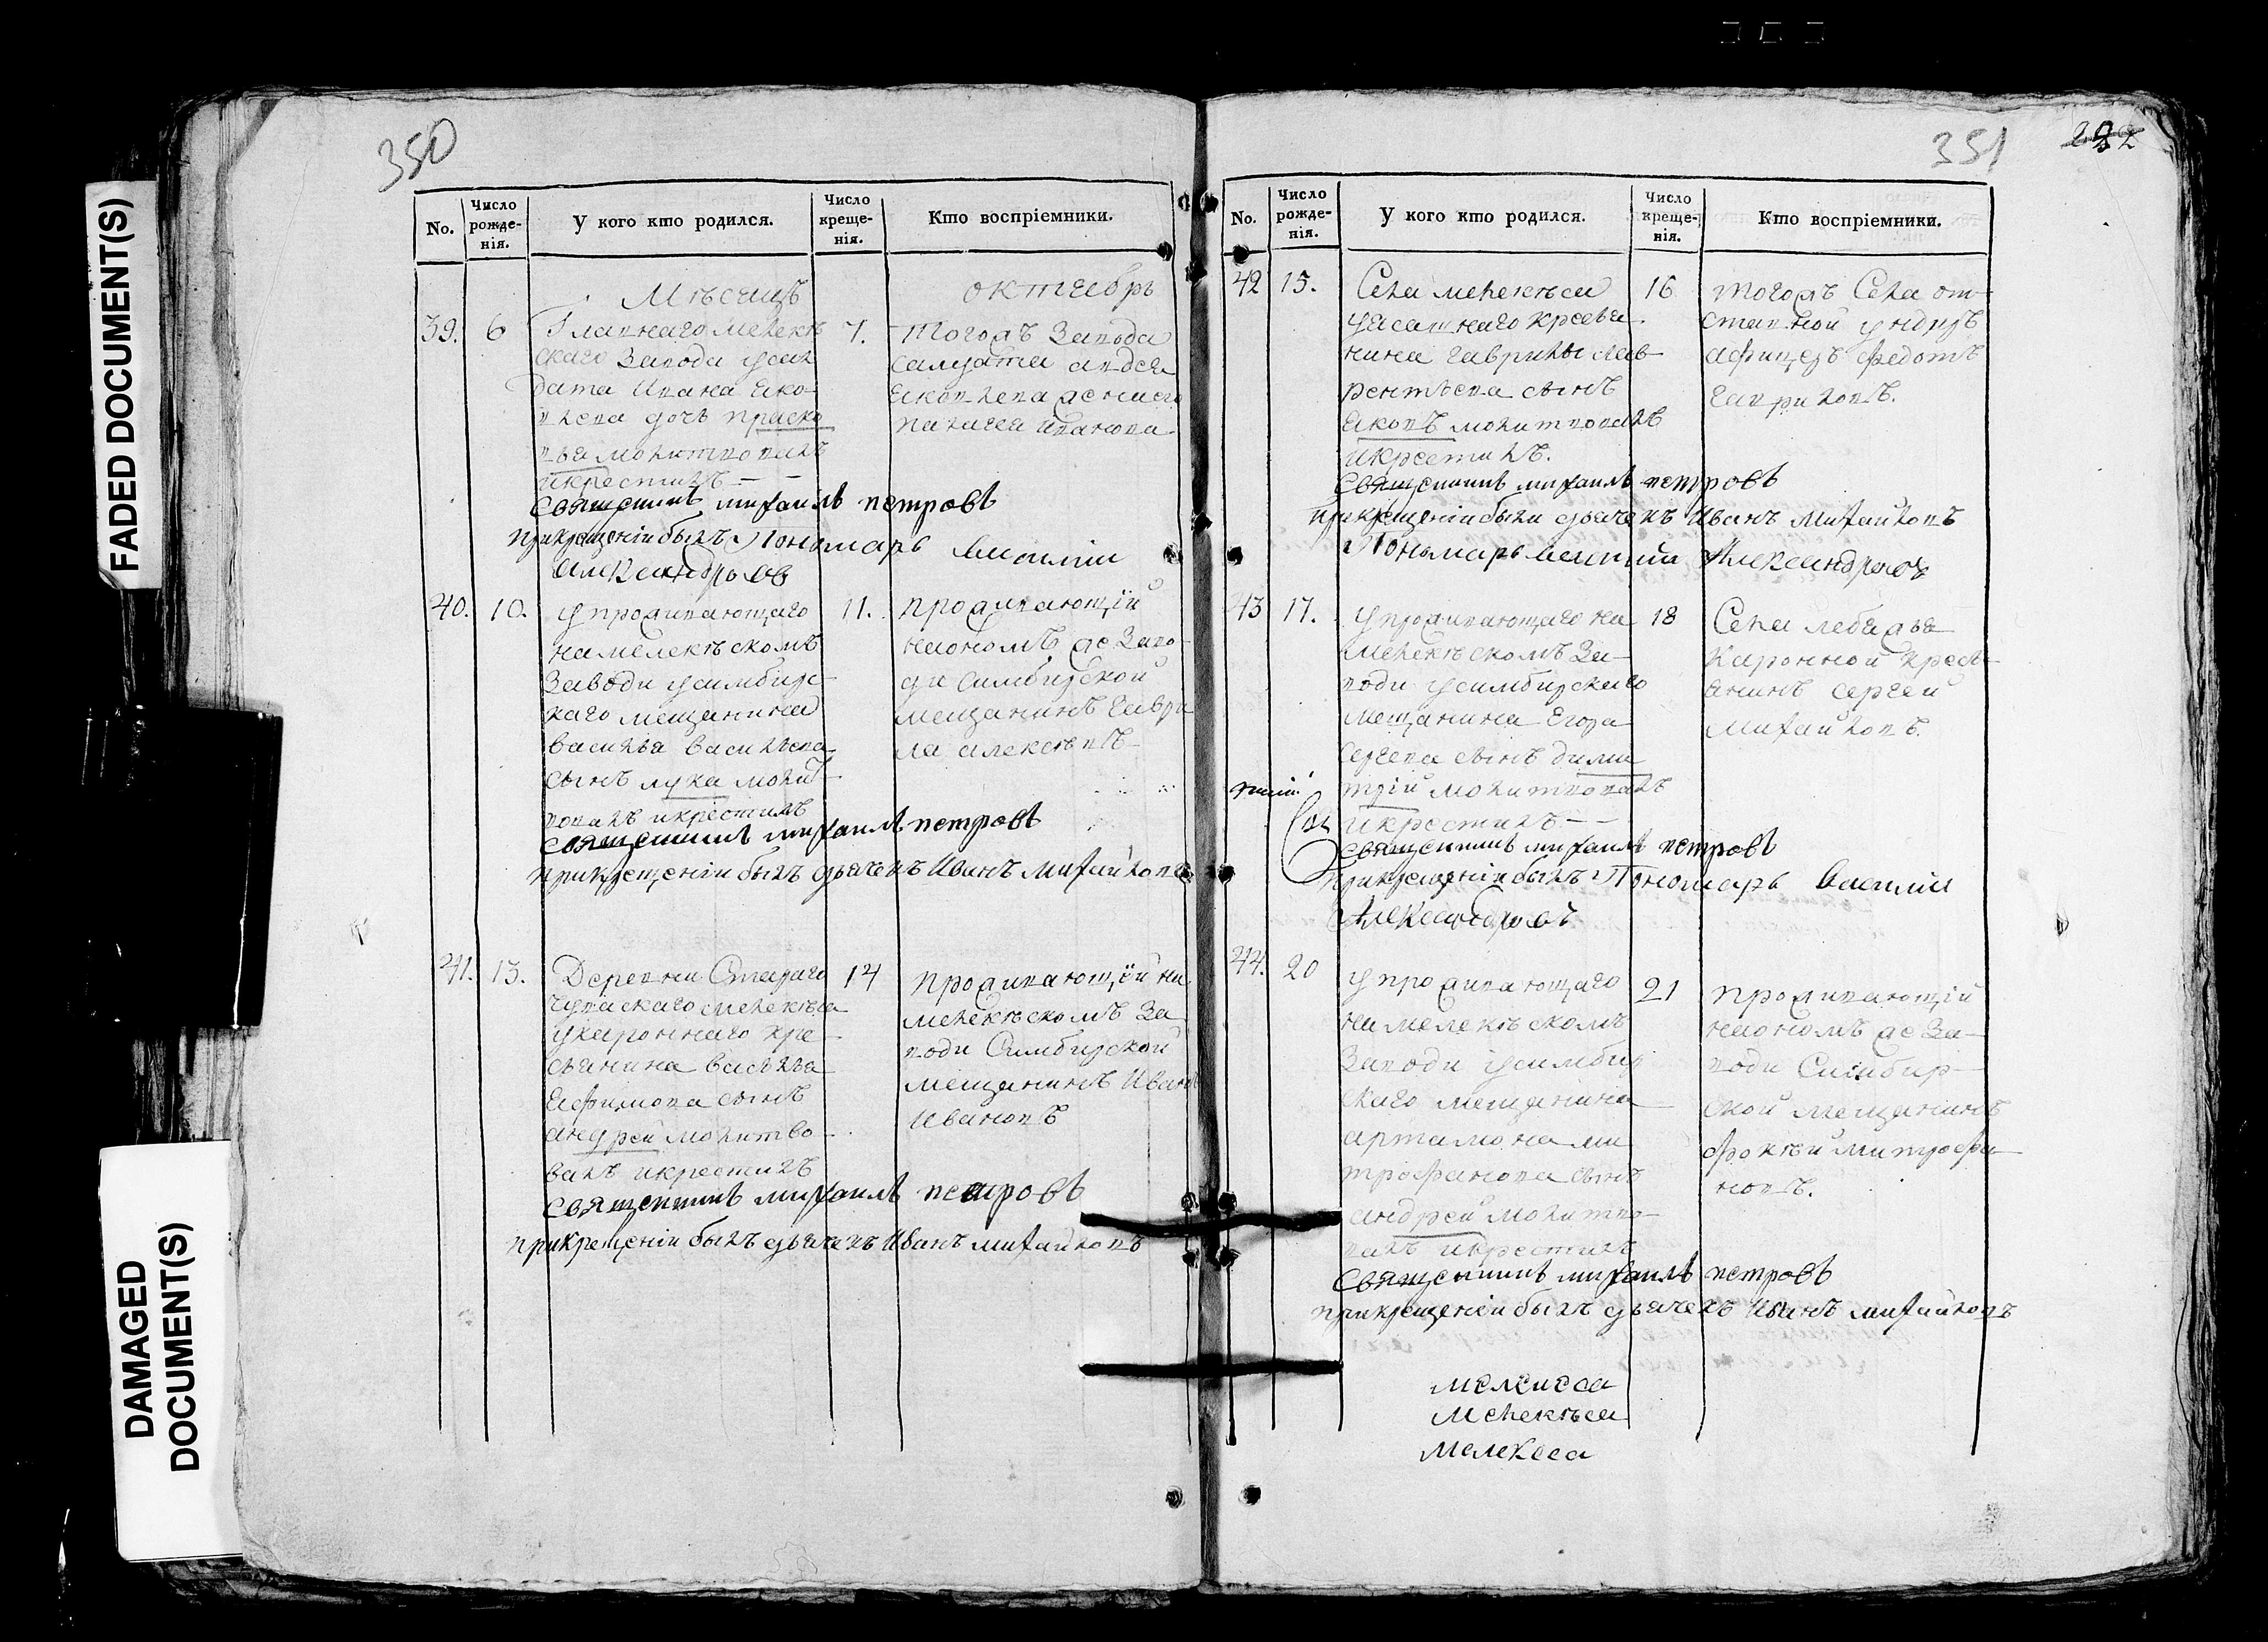 FADED DOCUMENT(S)
DAMAGED DOCUMENT(S)
350
No.
Число рожде-нія.
У кого кто родился.
Число креще-нія.
Кто воспріемники.
Мѣсяцъ октябрь
39. 6
Главнаго мелекѣ
скаго Завода усал
дата Ивана Яко
влева дочь праско
вья молитвовалъ
икрестилъ
7.
тогожъ Завода
салдата андрея
Яковлева жена
Священникъ михаилъ петровъ
прикрещеніи былъ Пономарь василіи
александровъ
40. 10.
упроживающаго
намелекѣскомъ
Заводи усимбирс
каго мещанина
василья васильева
сынъ лука молит
вовалъ икрестилъ
11.
проживающій
наономъ же Заво
ди симбирской
мещанинъ гаври
ла алексѣевъ
Священникъ михаилъ петровъ
прикрещеніи былъ дьячекъ Иванъ михайловъ
41. 13.
Деревни Стараго
уکароннаго кре
сьянина василья
Ефимова сынъ
андрей молитво
валъ икрестилъ
14
проживающій на
мелекѣскомъ За
води Симбирской
мещанинъ Иванъ
Ивановъ
Священникъ михаилъ петровъ
прикрещеніи былъ дьячекъ Иванъ михайловъ
351
No.
Число рожде-нія.
У кого кто родился.
Число креще-нія.
Кто воспріемники.
42 15.
Села мелекѣса
уясашнаго кресья
нина гаврилы лав
рентьева сынъ
яковъ молитвовалъ
икрестилъ.
16
тогожъ Села от
ставной ундиръ
афицеръ федотъ
гавриловъ.
Священникъ михаилъ петровъ
прикрещеніи были дьячекъ Иванъ михайловъ
Пономарь василий Александровъ
43 17.
упроживающаго на
мелекѣскомъ За
води усимбирскаго
мещанина Егора
сергева сынъ дими
трій молитвовалъ
икрестилъ
18
Села лебяжья
каронной кресь
янинъ сергей
михайловъ.
Священникъ михаилъ петровъ
прикрещеніи былъ Пономарь василіи
Александровъ
44. 20
упроживающаго
намелекѣскомъ
Заводи усимбир
скаго мещанина
артамона ми
трофанова сынъ
андрей молитво
валъ икрестилъ
21
проживающій
наономъ же За
води Симбир
ской мещанинъ
фокѣй митрофа
новъ.
Священникъ михаилъ петровъ
прикрещеніи былъ дьячекъ Иванъ михайловъ
мелекеса
мелекѣса
мелекеса